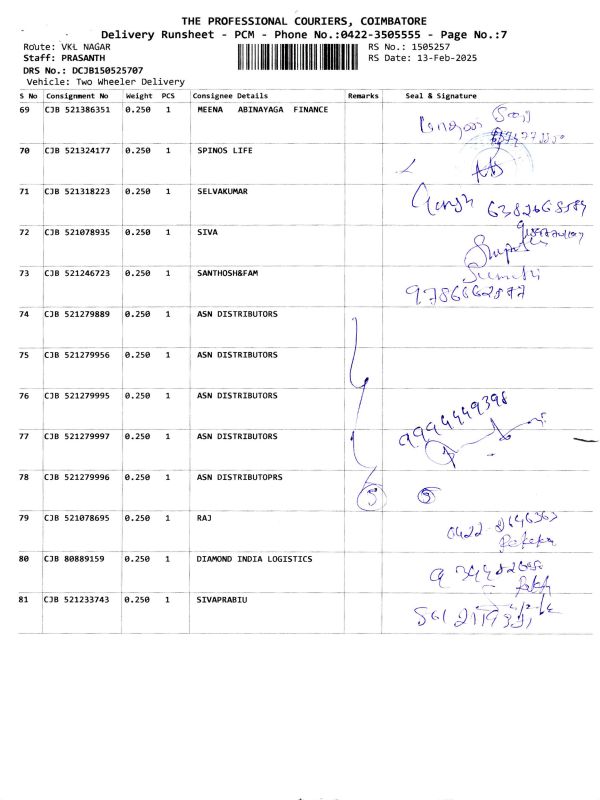 THE PROFESSIONAL COURIERS, COIMBATORE
Delivery Runsheet - PCM - Phone No.:0422-3505555 - Page No.:7
Route: VKL NAGAR RS No.: 1505257
Staff: PRASANTH RS Date: 13-Feb-2025
DRS No.: DCJB150525707
Vehicle: Two Wheeler Delivery
S No Consignment No Weight PCS Consignee Details Remarks Seal & Signature
69 CJB 521386351 0.250 1 MEENA ABINAYAGA FINANCE
70 CJB 521324177 0.250 1 SPINOS LIFE
71 CJB 521318223 0.250 1 SELVAKUMAR
72 CJB 521078935 0.250 1 SIVA
73 CJB 521246723 0.250 1 SANTHOSH&FAM
74 CJB 521279889 0.250 1 ASN DISTRIBUTORS
75 CJB 521279956 0.250 1 ASN DISTRIBUTORS
76 CJB 521279995 0.250 1 ASN DISTRIBUTORS
9994449398
77 CJB 521279997 0.250 1 ASN DISTRIBUTORS
78 CJB 521279996 0.250 1 ASN DISTRIBUTOPRS 5 5
79 CJB 521078695 0.250 1 RAJ
80 CJB 80889159 0.250 1 DIAMOND INDIA LOGISTICS
81 CJB 521233743 0.250 1 SIVAPRABIU